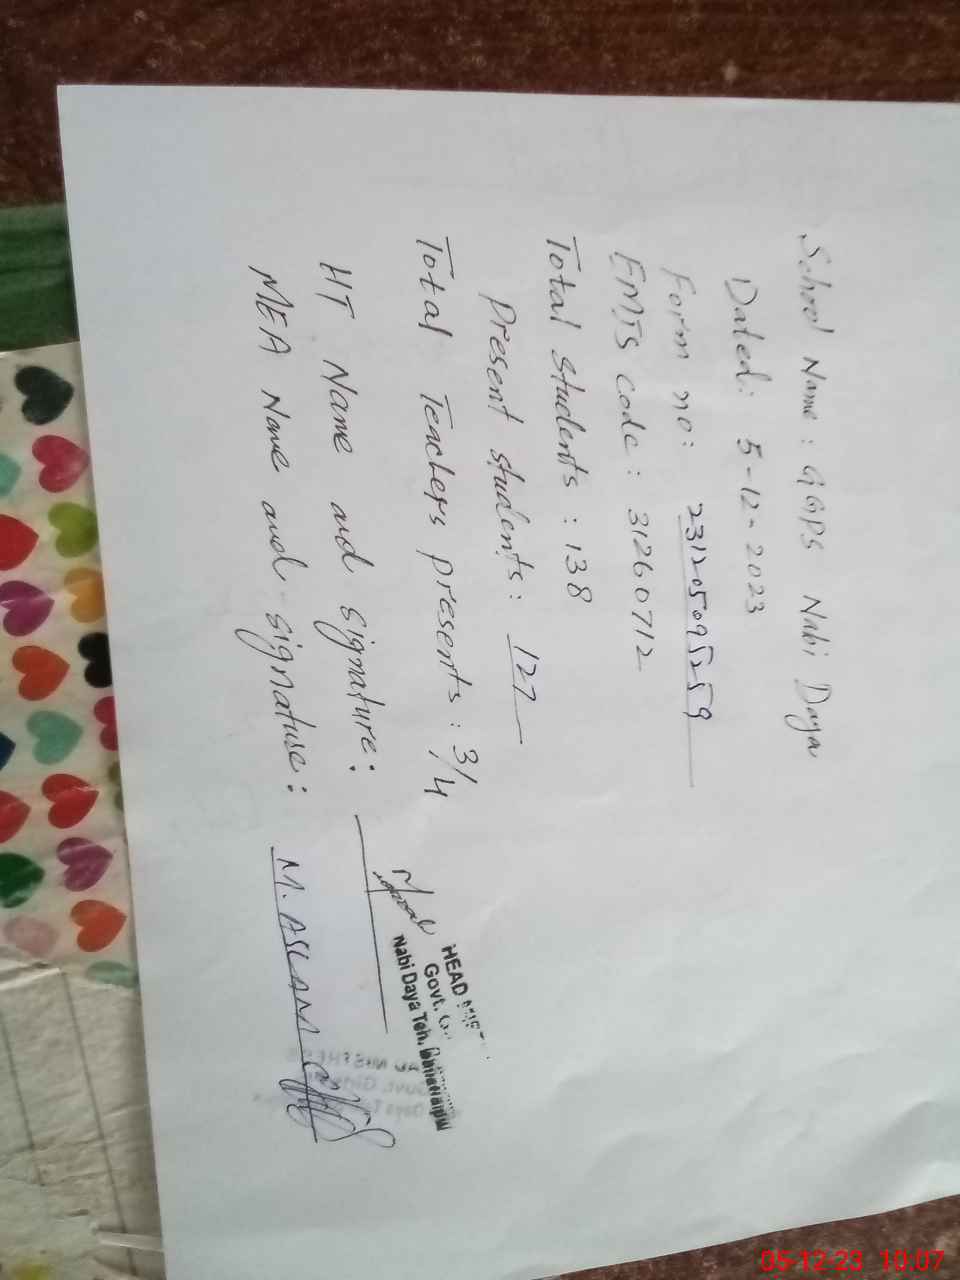 School Name: GGPS Nabi Daya
Dated: 5-12-2023
Form no: 231205095259
EMIS code: 31260712
Total students: 138
Present students: 127
Total Teachers presents: 3/4
HT Name and signature:
HEAD
Govt.
Nabi Daya Teh.
MEA Name and signature: M. ASLAM
05-12-23 10:07